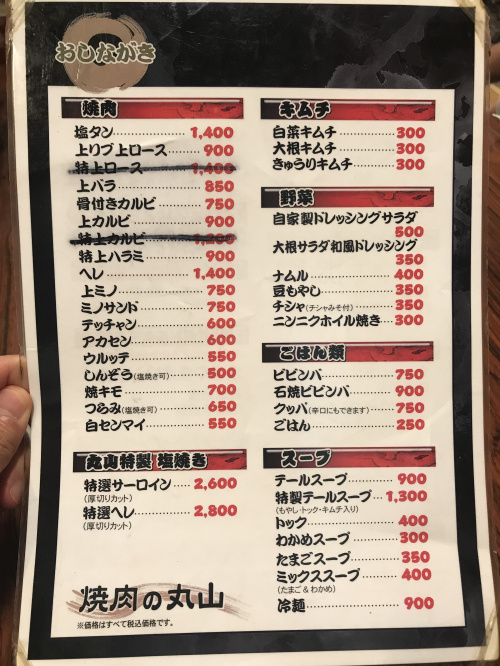 おしながき
焼肉
塩タン 1,400
上リブ上ロース 900
特上ロース 1,400
上バラ 850
骨付きカルビ 750
上カルビ 900
特上カルビ 1,200
特上ハラミ 900
ヘレ 1,400
上ミノ 750
ミノサンド 750
テッチャン 600
アカセン 600
ウルッテ 550
しんぞう(塩焼き可) 500
焼キモ 700
つらみ(塩焼き可) 650
白センマイ 550
丸山特製 塩焼き
特選サーロイン 2,600
(厚切りカット)
特選ヘレ 2,800
(厚切りカット)
焼肉の丸山
※価格はすべて税込価格です。
キムチ
白菜キムチ 300
大根キムチ 300
きゅうりキムチ 300
野菜
自家製ドレッシングサラダ
500
大根サラダ和風ドレッシング
350
ナムル 400
豆もやし 350
チシャ(チシャみそ付) 350
ニンニクホイル焼き 300
ごはん類
ビビンバ 750
石焼ビビンバ 900
クッパ(辛口にもできます) 750
ごはん 250
スープ
テールスープ 900
特製テールスープ 1,300
(もやし・トック・キムチ入り)
トック 400
わかめスープ 300
たまごスープ 350
ミックススープ 400
(たまご&わかめ)
冷麺 900